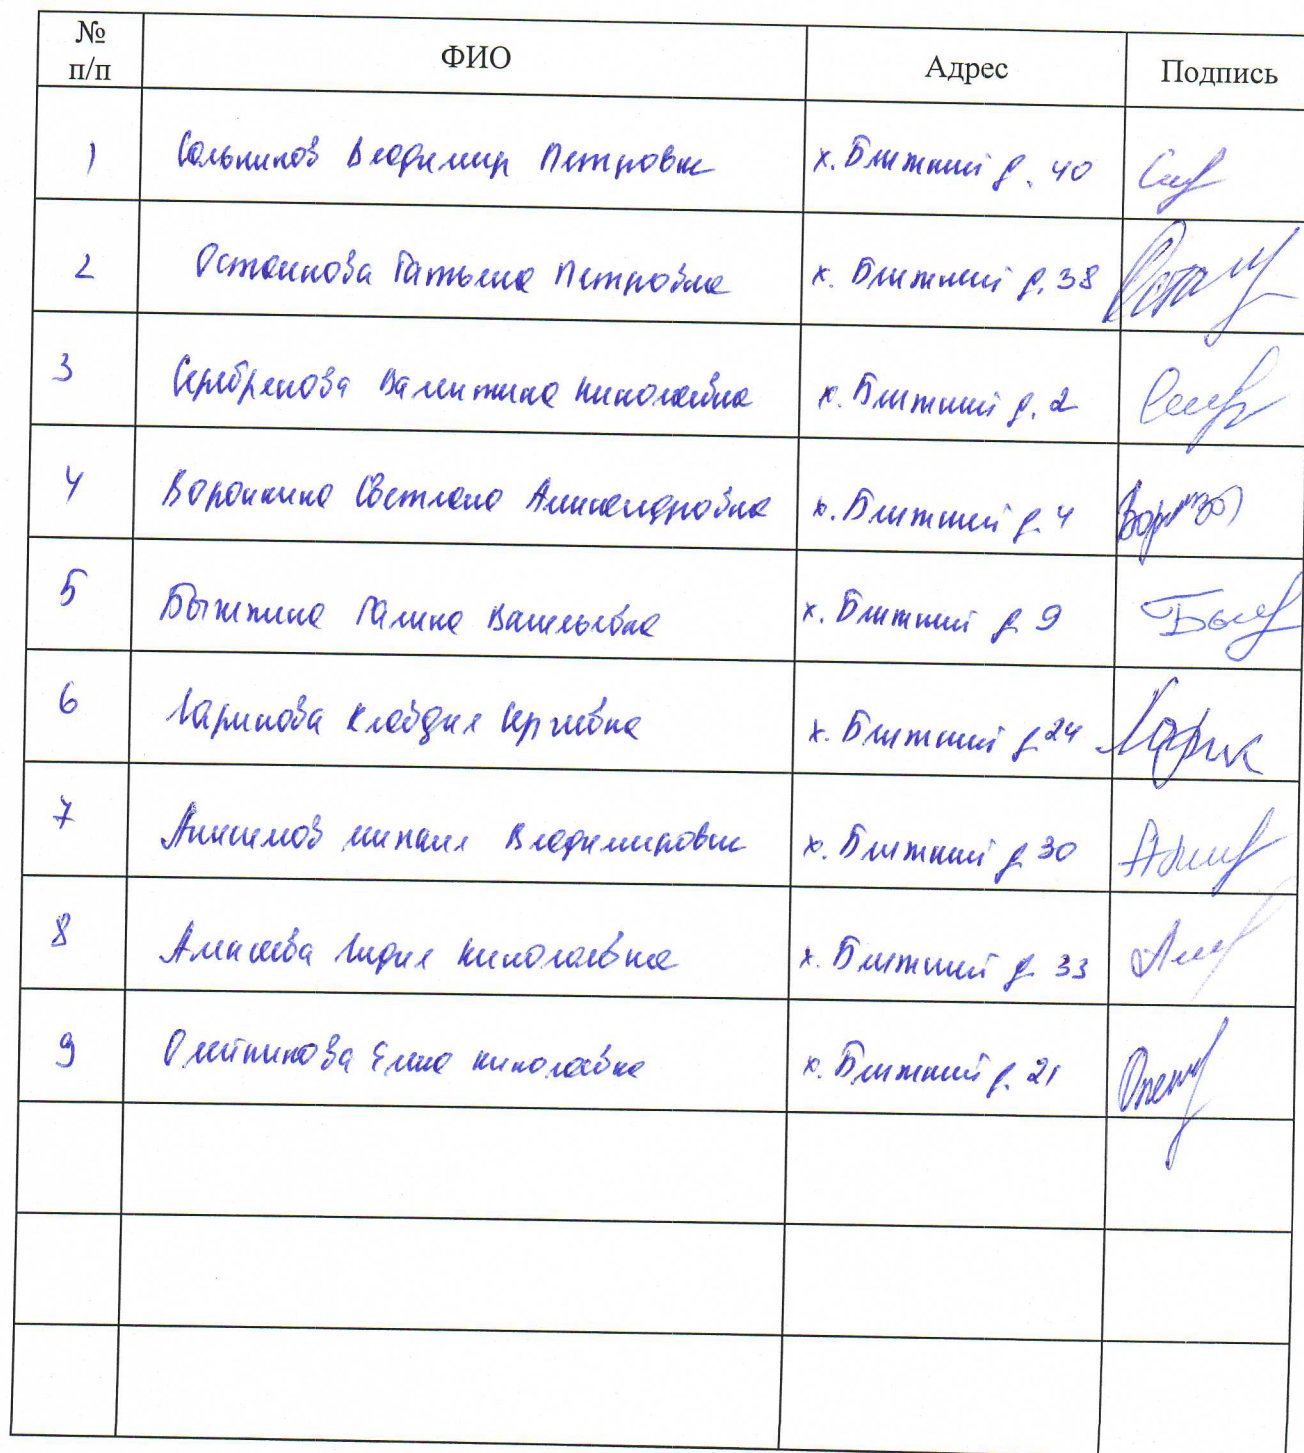 № п/п ФИО Адрес Подпись
1 Сальников Владимир Петрович х. Ближний д. 40
2 Остаинова Татьяна Петровна х. Ближний д. 38
3 Серебренова Валентина Николаевна х. Ближний д. 2
4 Воронкина Светлана Александровна х. Ближний д. 4
5 Галина Васильевна х. Ближний д 9
6 Ларикова Клавдия Сергеевна х. Ближний д 24
7 Анисимов михаил Владимирович х. Ближний д 30
8 Алексеева Лидия Николаевна х. Ближний д 33
9 Олейникова Елена николаевна х. Ближний д. 21